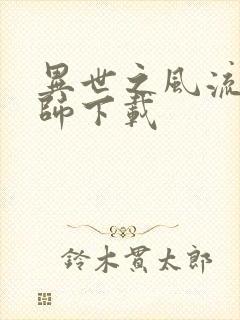 異世之風流
師下載
鈴木貫太郎